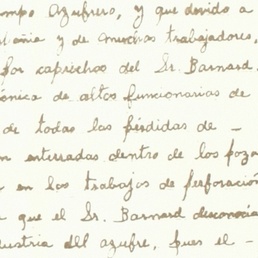 mpo Azufrero, y que devido a
y de nuestros trabajadores,
por caprichos del Sr. Barnard
ónica de altos funcionarios de
de todas las pérdidas de -
n enterradas dentro de los poza
en los trabajos de perforación
que el Sr. Barnard desconocía
dustria del azufre, pues el -